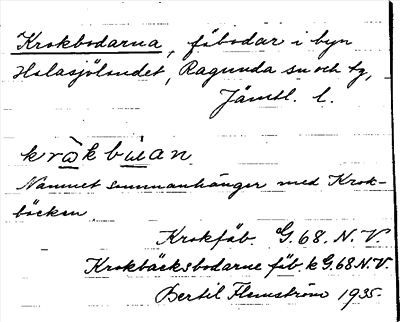 Krokbodarna, fäbodar i byn
Halasjölandet, Ragunda sn och tg,
Jämtl. l.
kròkbùan
Namnet sammanhänger med Krok-
bäcken.
Krokfäb. G.68.N.V.
Krokbäcksbodarne fäb. k G.68 N.V.
Bertil Flemström 1935.